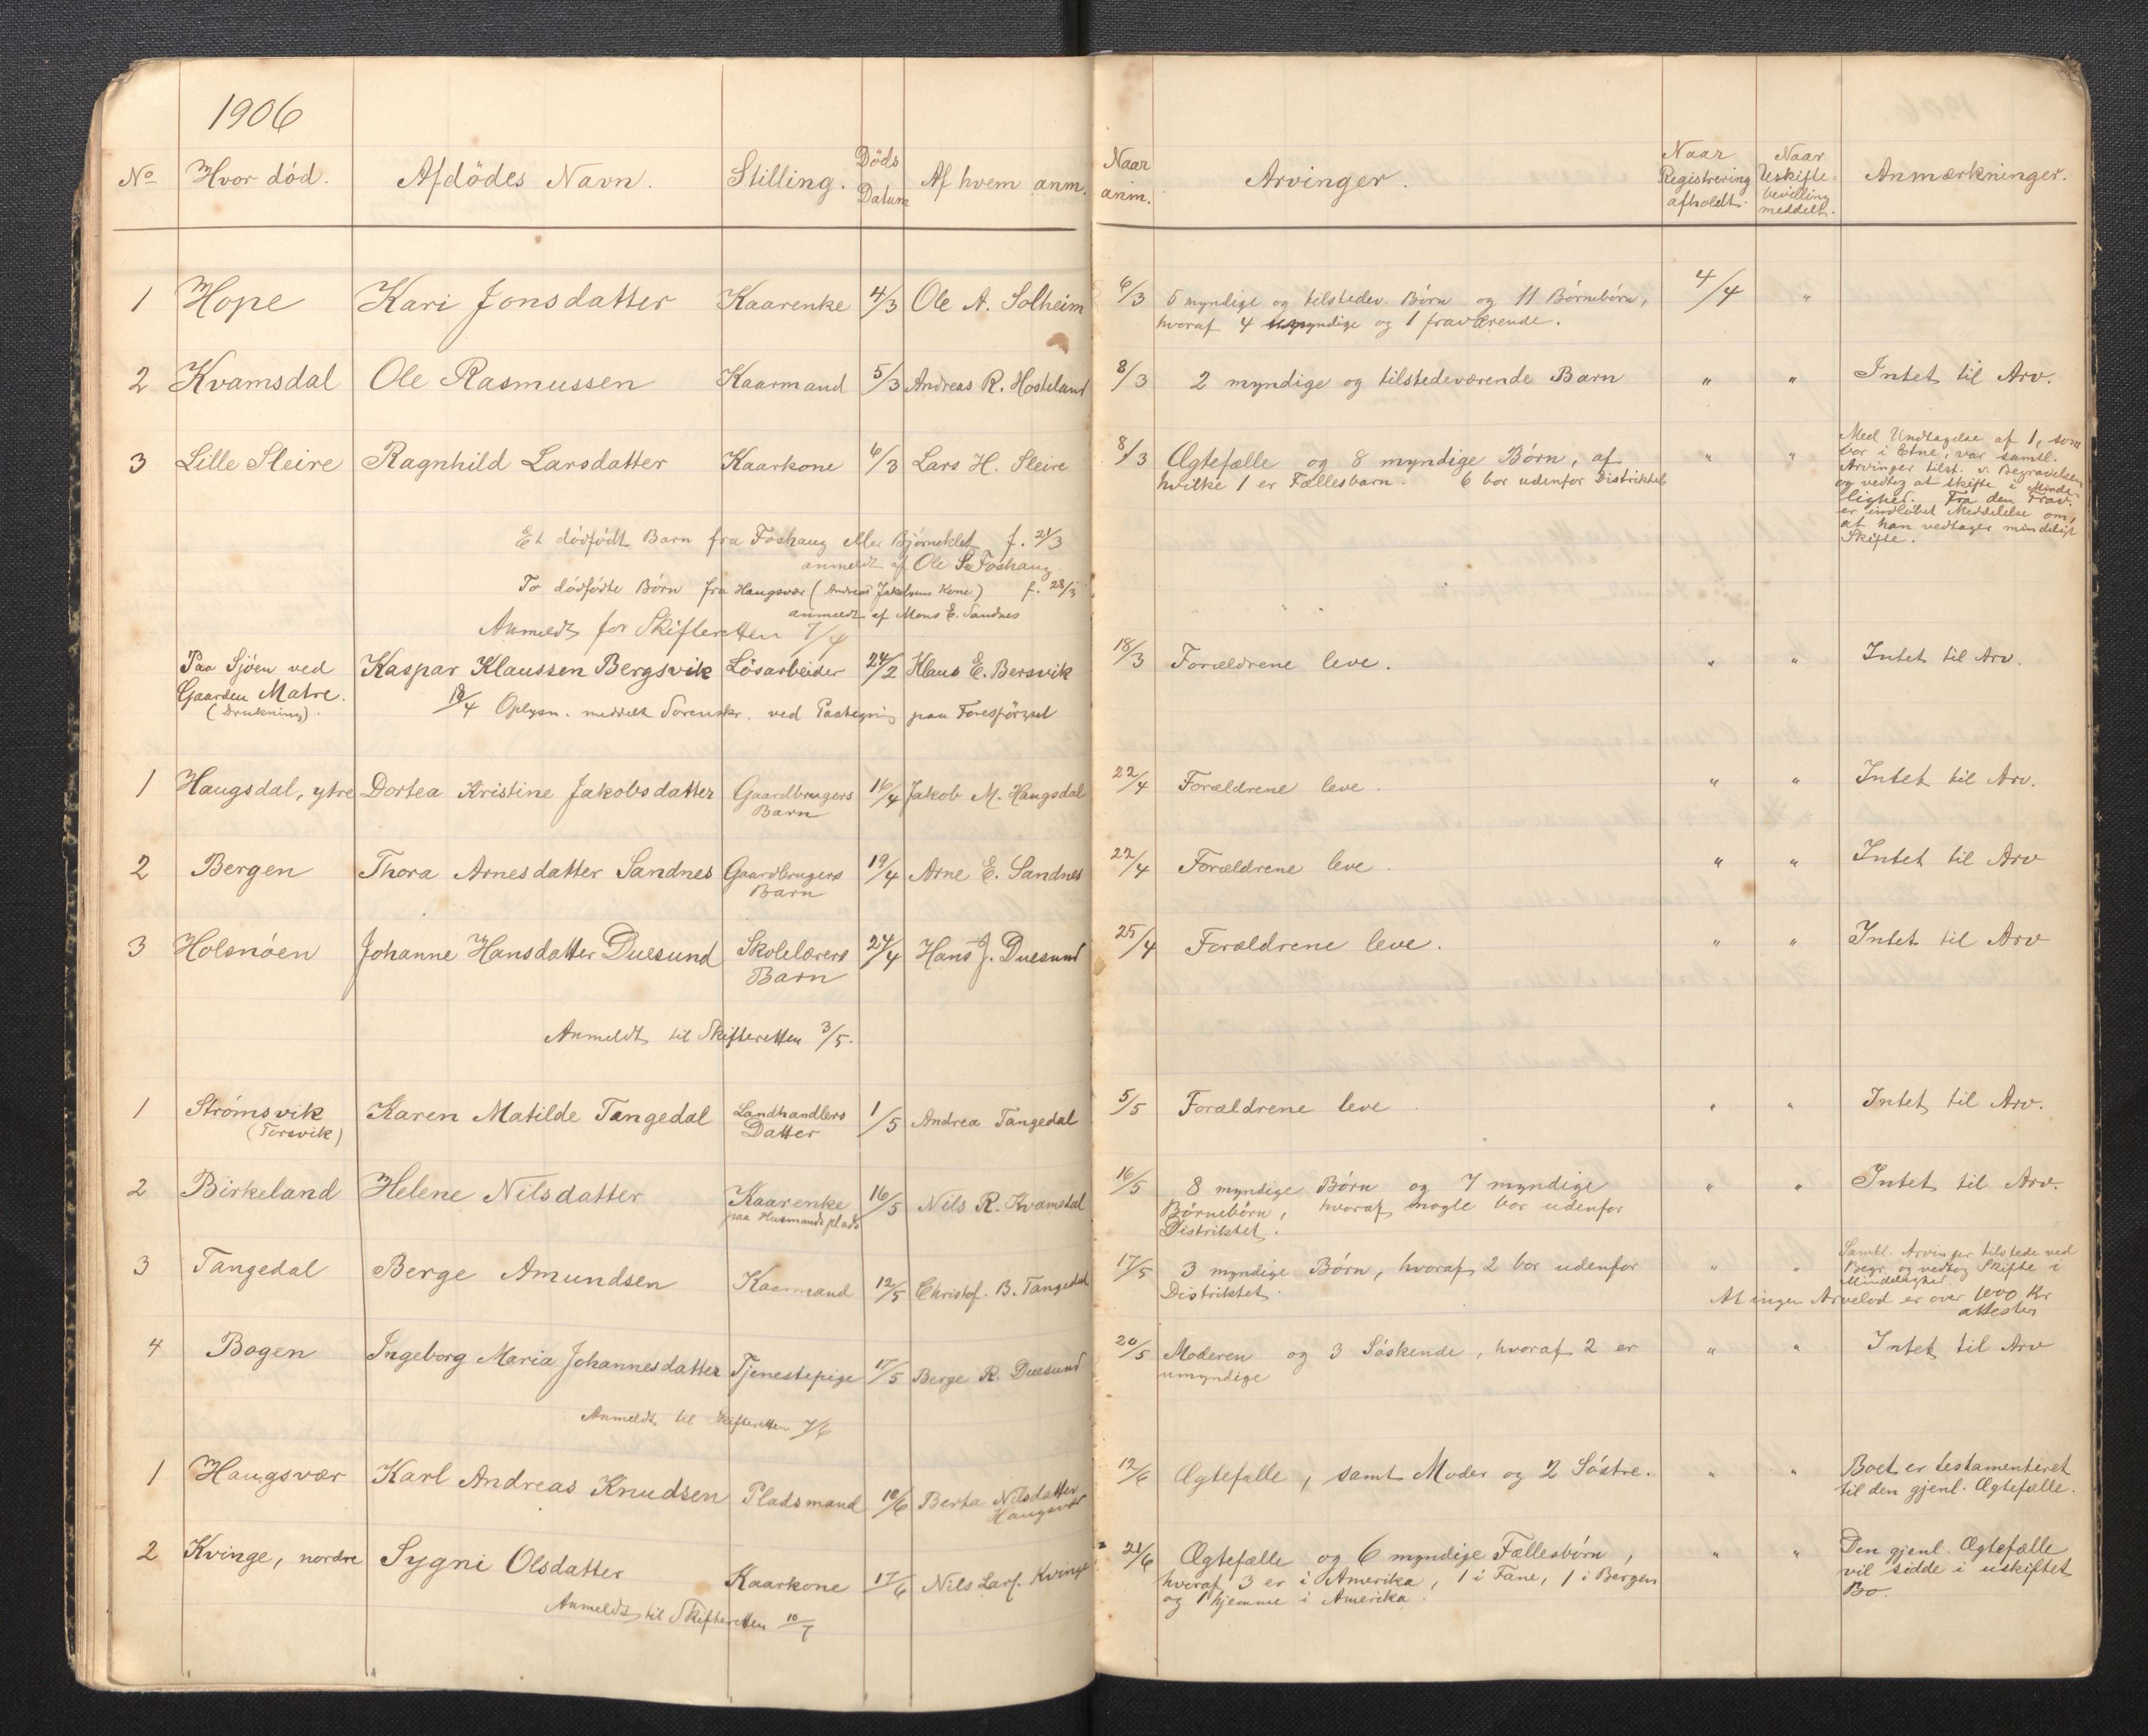 1906
No Hvor död. Afdödes Navn. Stilling. Döds Datum Af hvem anm. Naar anm. Arvinger. Naar Registrering afholdt. Naar Uskifte- bevilling meddelt. Anmærkninger.
1 Hope Kari Jonsdatter Kaarenke 4/3 Ole A. Solheim 6/3 5 myndige og tilstedev. Börn og 11 Börnebörn, 4/4 "
hvoraf 4 myndige og 1 fraværende.
2 Kvamsdal Ole Rasmussen Kaarmand 5/3 Andreas R. Hosteland 8/3 2 myndige og tilstedeværende Barn " " Intet til Arv.
3 Lille Sleire Ragnhild Larsdatter Kaarkone 6/3 Lars H. Sleire 8/3 Ægtefælle og 8 myndige Börn, af " "
hvilke 1 er Fællesbarn. 6 bor udenfor Distriktet
Med Undtagelse af 1, som
bor i Etne, var samtl.
Arvinger tilst. v. Begravelsen
og vedtog at skifte i Minde-
lighed. Fra den Frav.
er indløbet Meddelelse om,
at han vedtager mindeligt
Skifte.
Et dödfödt Barn fra Foshaug eller Bjørneklet f. 21/3
anmeldt af Ole Foshaug.
To dödfödte Börn fra Haugsvær (Andreas Jakobsens Kone) f. 28/3
anmeldt af Mons E. Sandnes
Anmeldt for Skifteretten 7/4
Paa Sjöen ved Kaspar Klaussen Bergsvik Lösarbeider 24/2 Klaus E. Bersvik 18/3 Forældrene leve. " " Intet til Arv.
Gaarden Matre.
(Drukning).
18/4 Oplysn. meddelt Sorenskr. ved Paategning paa Forespörgsel
1 Haugsdal, ytre Dortea Kristine Jakobsdatter Gaardbrugers Barn 16/4 Jakob M. Haugsdal 22/4 Forældrene leve. " " Intet til Arv.
2 Bergen Thora Arnesdatter Sandnes Gaardbrugers Barn 19/4 Arne E. Sandnes 22/4 Forældrene leve. " " Intet til Arv
3 Holsnöen Johanne Hansdatter Duesund Skolelærers Barn 24/4 Hans J. Duesund 25/4 Forældrene leve. " " Intet til Arv
Anmeldt til Skifteretten 3/5.
1 Strömsvik Karen Matilde Tangedal Landhandlers Datter 1/5 Andrea Tangedal 5/5 Forældrene leve. " " Intet til Arv.
(Torsvik)
2 Birkeland Helene Nilsdatter Kaarenke 16/5 Nils R. Kvamsdal 16/5 8 myndige Börn og 7 myndige " " Intet til Arv.
paa Husmandsplads
Börnebörn, hvoraf nogle bor udenfor
Distriktet.
3 Tangedal Berge Amundsen Kaarmand 12/5 Christof. B. Tangedal 17/5 3 myndige Börn, hvoraf 2 bor udenfor " "
Distriktet.
Samtl. Arvinger tilstede ved
Begr. og vedtog Skifte i
Mindelighed.
At ingen Arvelod er over 1000 Kr
attesten
4 Bogen Ingeborg Maria Johannesdatter Tjenestepige 17/5 Berge R. Duesund 20/5 Moderen og 3 Söskende, hvoraf 2 er " " Intet til Arv
umyndige
Anmeldt til Skifteretten 7/6
1 Haugsvær Karl Andreas Knudsen Pladsmand 10/6 Berta Nilsdatter Haugsvær 12/6 Ægtefælle, samt Moder og 2 Söstre. " " Boet er testamenteret
til den gjenl. Ægtefælle.
2 Kvinge, nordre Sygni Olsdatter Kaarkone 17/6 Nils Lars. Kvinge 21/6 Ægtefælle og 6 myndige Fællesbörn, " " Den gjenl. Ægtefælle
hvoraf 3 er i Amerika, 1 i Fane, 1 i Bergen vil sidde i uskiftet
og 1 hjemme i Amerika. Bo.
Anmeldt til Skifteretten 10/7